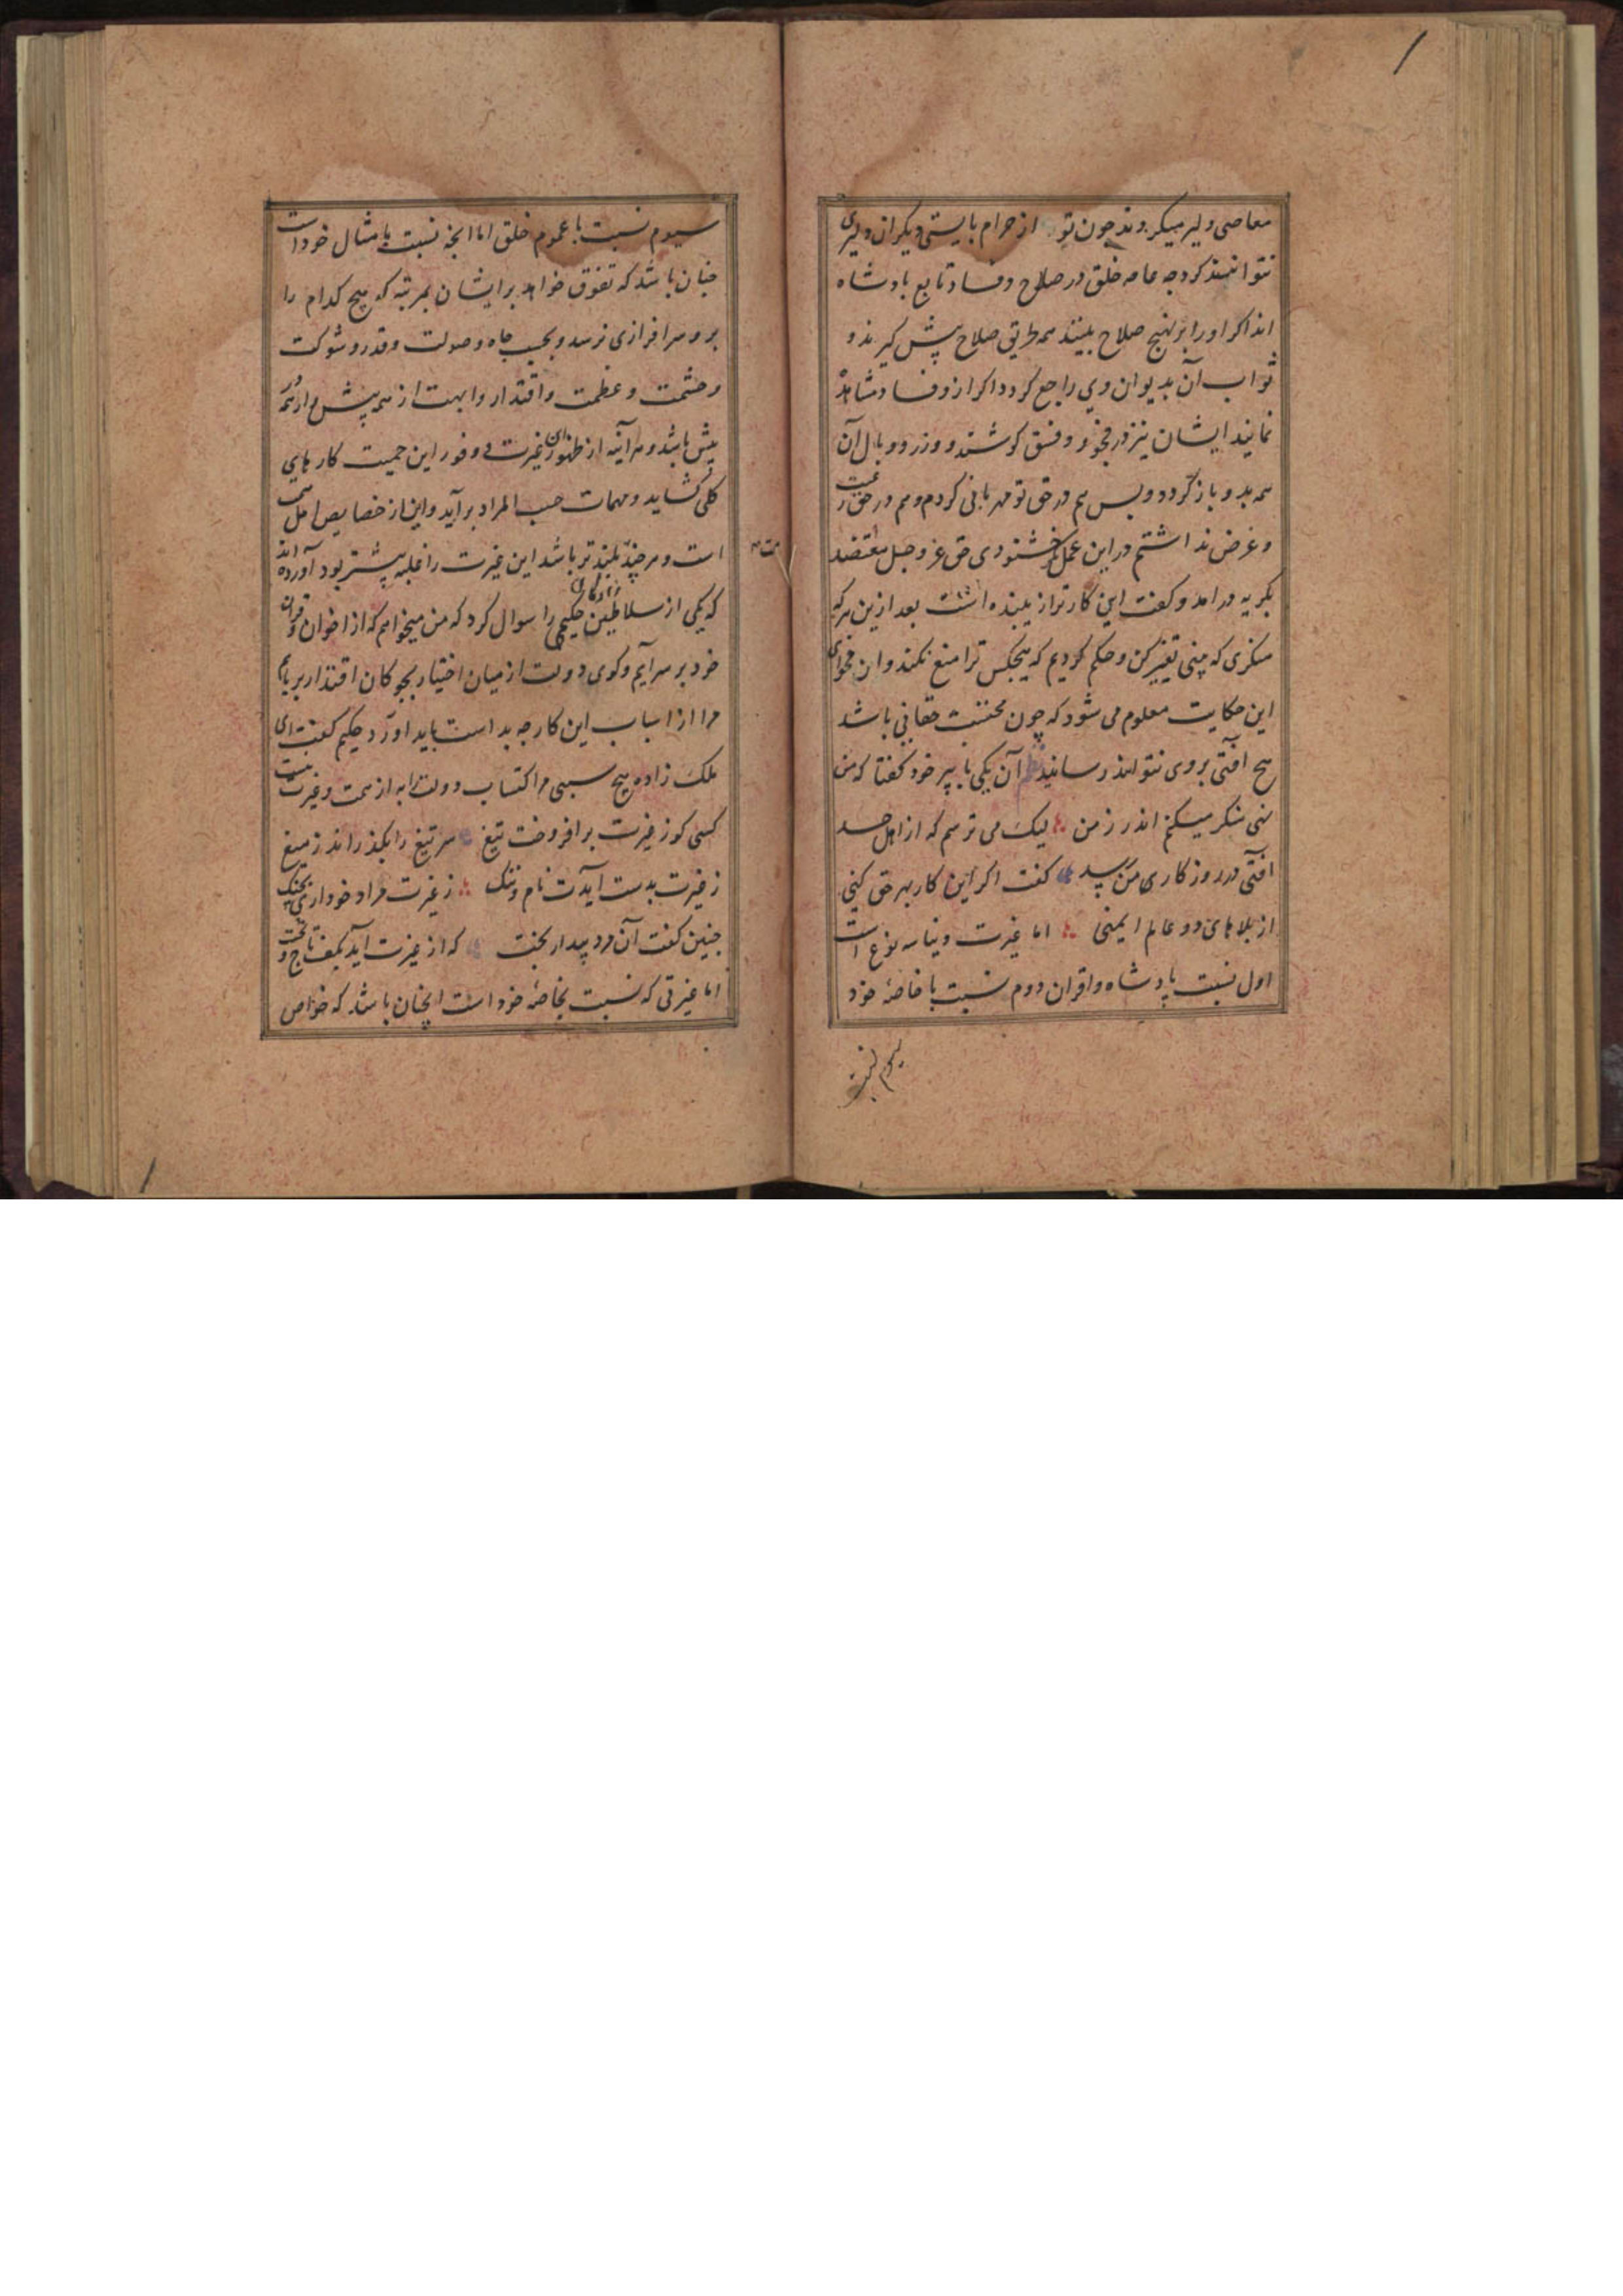 معاصی دلیر میکردند چون تو از حرام بایستی دیگران دلیری
نتوانند کرد چه عامه خلق در صلاح و فساد تابع بادشاه
اند اکر او را بر نهج صلاح بینند همه طریق صلاح پیش کیرند و
ثواب آن بدیوان وی راجع کردد و اکر ازو فساد مشاهده
نمایند ایشان نیز در فجور و فسق کوشند و وزر و وبال آن
همه بدو باز کردد و بس هم در حق تو مهربانی کردم و هم در حق رعیت
و غرض نداشتم در این عمل جز خشنودی حق عز و جل معتضد
بکریه در امد و کفت این کار ترا زیبنده است بعد ازین هر کجا
منکری که بینی تغیر کن و حکم کردیم که هیچکس ترا منع نکند و از فحوای
این حکایت معلوم می شود که چون محتسب حقانی باشد
هیچ آفتی بروی نتواند رسانید نظم آن یکی با پیر خود کفتا که من
نهی منکر میکنم اندر زمن لیک می ترسم که از اهل حسد
آفتی در روزکاری من رسد کفت اکر این کار بهر حق کنی
از بلاهای دو عالم ایمنی اما غیرت دنیا سه نوع است
اول نسبت بادشاه و اقران دوم نسبت با خاصهٔ خود
سیوم نسبت
سیوم نسبت با عموم خلق اما انچه نسبت بامثال خود است
چنان باشد که تفوق خواهد بر ایشان بمرتبه که هیچ کدام را
برو سرافرازی نرسد و بحسب جاه و صولت و قدر و شوکت
و حشمت و عظمت و اقتدار و ابهت از همه پیش و از همه
بیش باشد و هر آینه از ظهور این غیرت و وفور این حمیت کارهای
کلی کشاید و مهمات حسب المراد بر آید و این از خصایص اهل همت
است و هر چند همت بلندتر باشد این غیرت را غلبه بیشتر بود آورده اند
که یکی از سلاطین زادکان حکیمی را سوال کرد که من میخواهم که از اخوان و اقران
خود بر سر آیم و کوی دولت از میان اختیار بچوکان اقتدار بربایم
مرا از اسباب این کار چه بدست باید اورد حکیم کفت ای
ملک زاده هیچ سببی مر اکتساب دولت را به از همت و غیرت نیست
کسی کوز غیرت برافروخت تیغ سر تیغ را بکذراند ز میغ
ز غیرت بدست آیدت نام و ننک ز غیرت مراد خود اری بچنک
چنین کفت آن مرد بیدار بخت که از غیرت آید بکف تاج و تخت
اما غیرتی که نسبت بخاصهٔ خود است انچنان باشد که خواص